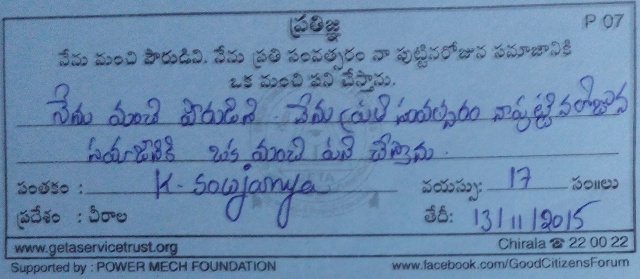 ప్రతిజ్ఞ
P 07
నేను మంచి పౌరుడిని. నేను ప్రతి సంవత్సరం నా పుట్టినరోజున సమాజానికి
ఒక మంచి పని చేస్తాను.
నేను మంచి పౌరుడిని. నేను ప్రతి సంవత్సరం నా పుట్టినరోజున
సమాజానికి ఒక మంచి పని చేస్తాను.
సంతకం : K. sowjanya వయస్సు: 17 సం॥లు
ప్రదేశం : చీరాల తేదీ: 13/11/2015
www.getaservicetrust.org Chirala ☎ 22 00 22
Supported by : POWER MECH FOUNDATION www.facebook.com/GoodCitizensForum